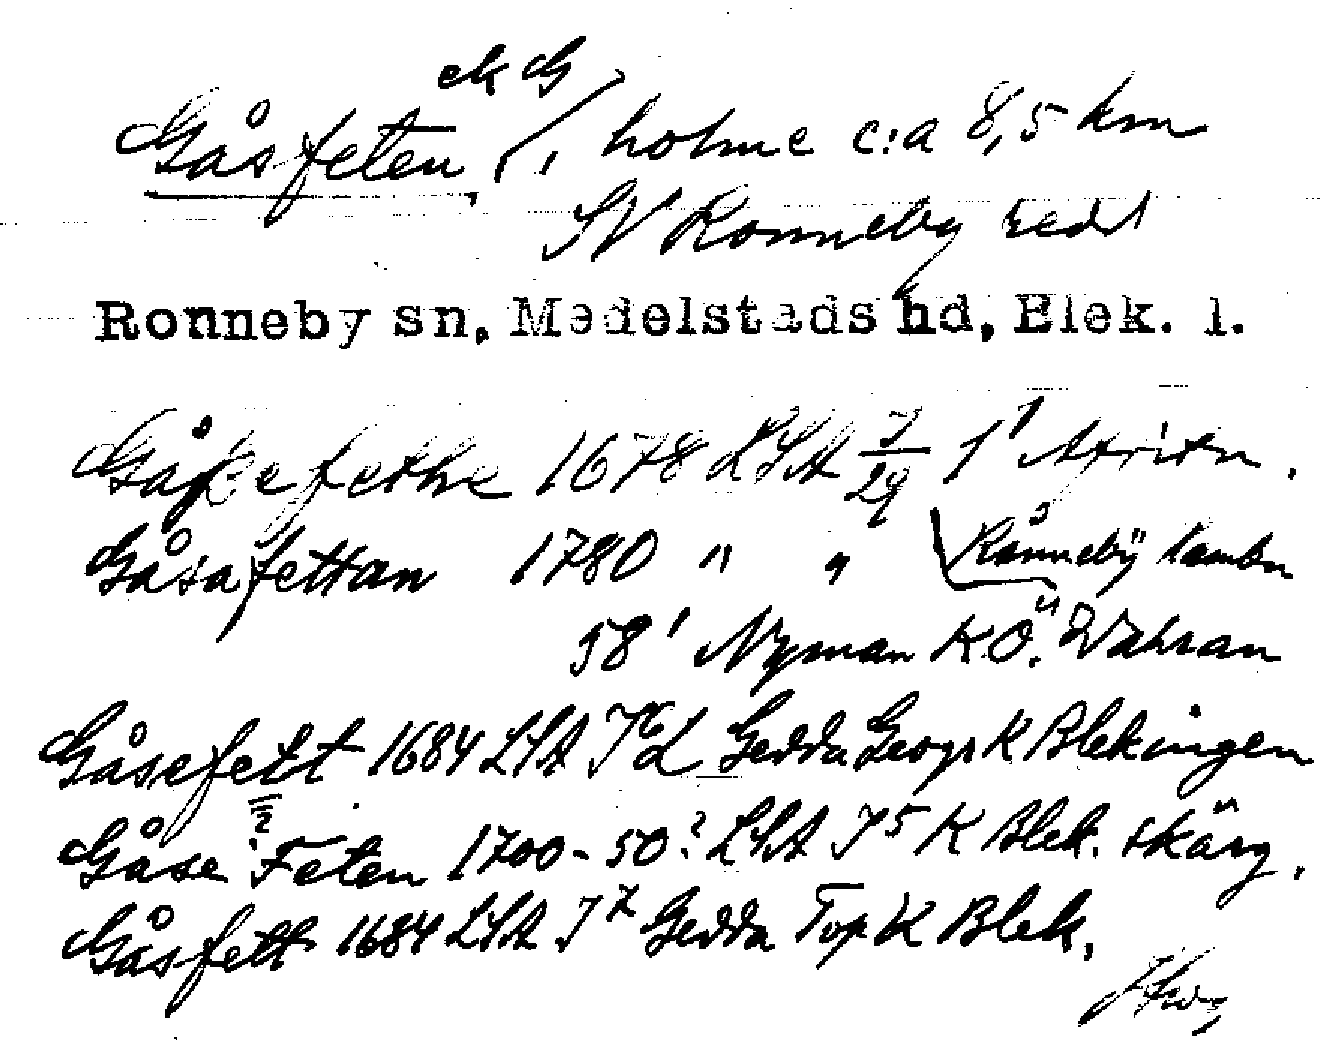 ek G
Gåsfeten, holme c:a 8,5 km
SV Ronneby red
Ronneby sn, Medelstads hd, Blek. l.
Gåßefethe 1678 LSA J/29 1' Afritn.
Gåsafettan 1780 " " Rånnebÿ lambn
58' Nyman KÖ.
Gåsefett 1684 LSA J6L Gedda Geogr K Blekingen
Gåse Feten 1700-50? LSA J5 K Blek. skärg.
Gåsfett 1684 LSA J7 Gedda Top K Blek.